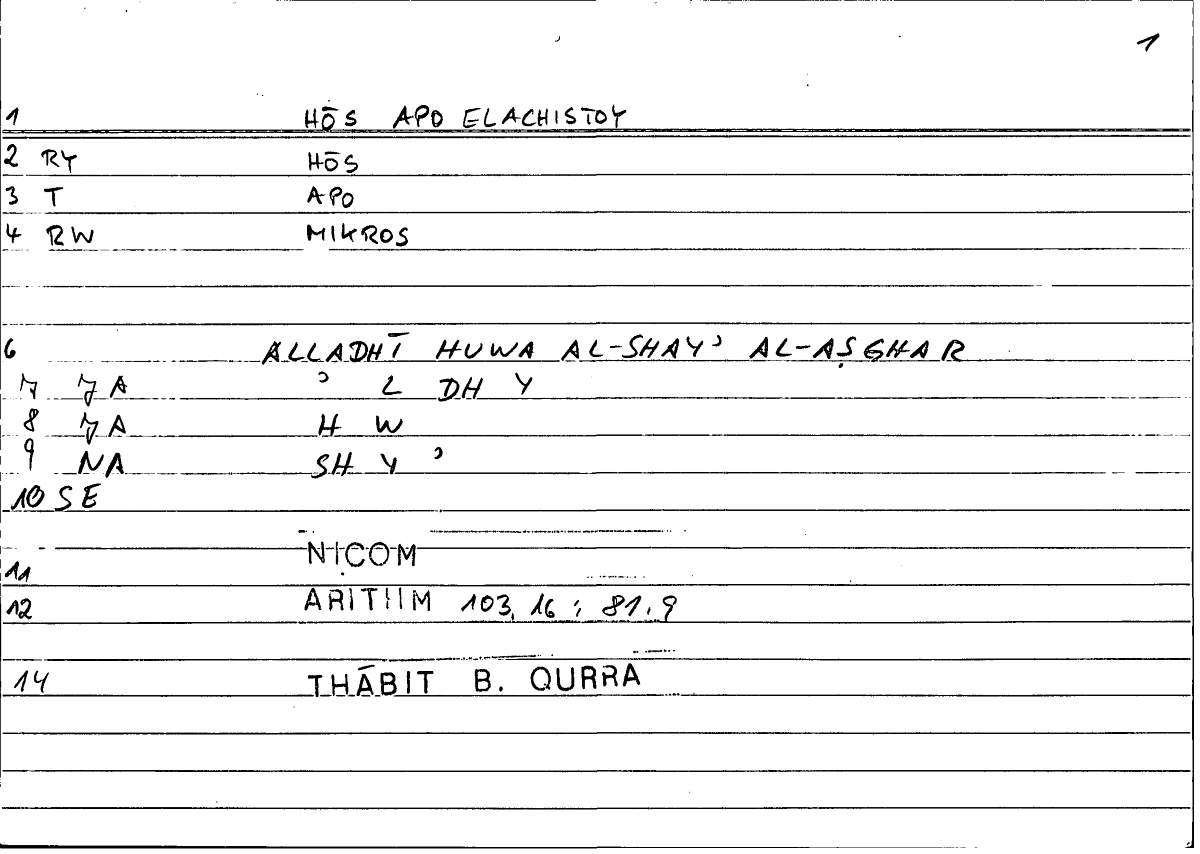 1
1 HŌS APO ELACHISTOY
2 RY HŌS
3 T APO
4 RW MIKROS
6 ALLADHĪ HUWA AL-SHAYʾ AL-AṢGHAR
7 JA ʾ L DH Y
8 JA H W
9 NA SH Y ʾ
10 SE
11 NICOM
12 ARITHM 103, 16 ; 81.9
14 THĀBIT B. QURRA